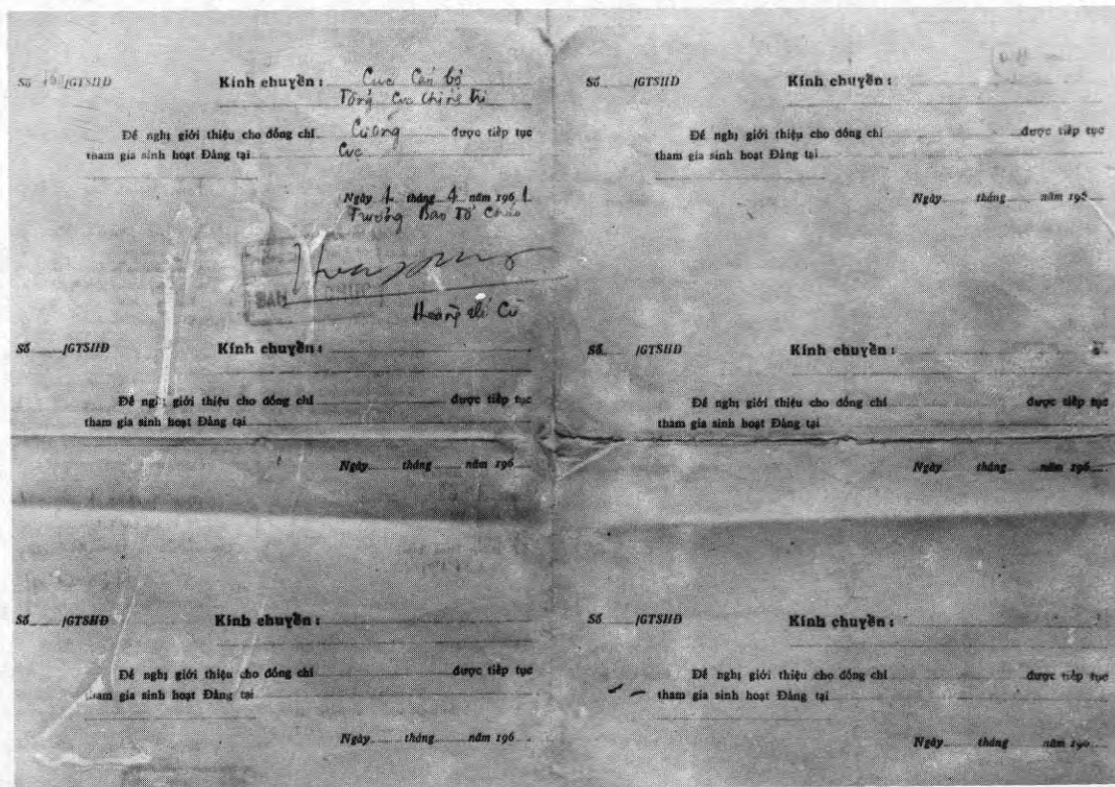 Số /GTSHĐ Kính chuyển : Cục Cán bộ
Tổng Cục Chính trị
Đề nghị giới thiệu cho đồng chí Cương được tiếp tục
tham gia sinh hoạt Đảng tại Cục
Ngày 1 tháng 4 năm 1961
Trưởng Ban Tổ Chức
BAN CHỨC
Số /GTSHĐ Kính chuyển :
Đề nghị giới thiệu cho đồng chí được tiếp tục
tham gia sinh hoạt Đảng tại
Ngày tháng năm 196
Số /GTSHĐ Kính chuyển :
Đề nghị giới thiệu cho đồng chí được tiếp tục
tham gia sinh hoạt Đảng tại
Ngày tháng năm 196
Số /GTSHĐ Kính chuyển :
Đề nghị giới thiệu cho đồng chí được tiếp tục
tham gia sinh hoạt Đảng tại
Ngày tháng năm 196
Số /GTSHĐ Kính chuyển :
Đề nghị giới thiệu cho đồng chí được tiếp tục
tham gia sinh hoạt Đảng tại
Ngày tháng năm 196
Số /GTSHĐ Kính chuyển :
Đề nghị giới thiệu cho đồng chí được tiếp tục
tham gia sinh hoạt Đảng tại
Ngày tháng năm 196